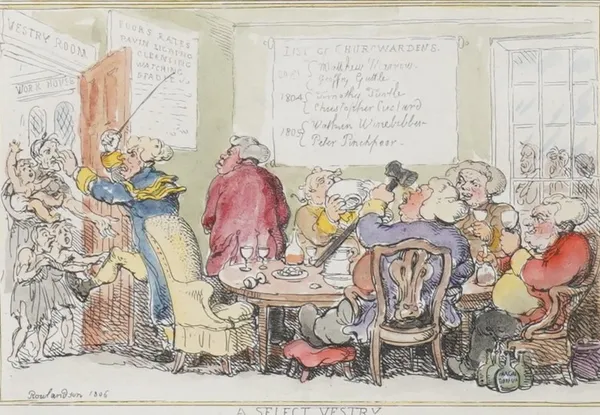 VESTRY ROOM
WORK HOUSE
POORS RATES
PAVIN LIGHING
CLEANSING
WATCHING
BEADLE
LIST OF CHURCWARDENS
Matthew Marrow
Guffey Guttle
1804 Timothy Turtle
Christopher Custard
1805 Nathan Winebibber
Peter Pinchpoor
Rowlandson 1806
A SELECT VESTRY